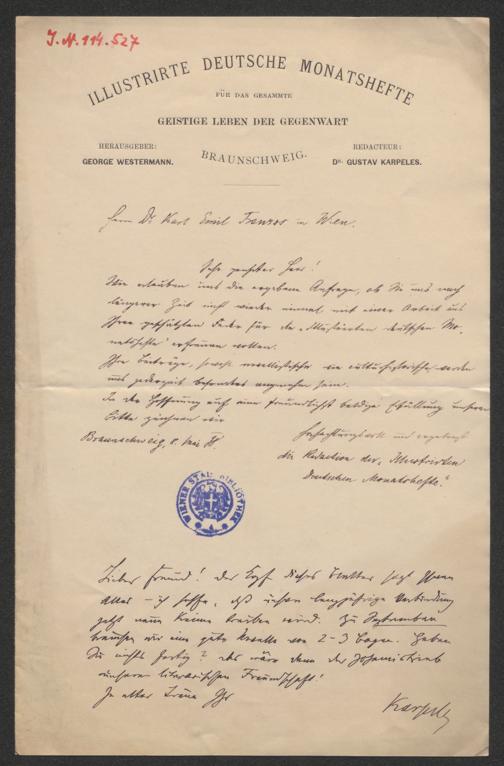 J.N. 114.527
ILLUSTRIRTE DEUTSCHE MONATSHEFTE
FÜR DAS GESAMMTE
GEISTIGE LEBEN DER GEGENWART
HERAUSGEBER:
GEORGE WESTERMANN.
BRAUNSCHWEIG.
REDACTEUR:
DR. GUSTAV KARPELES.
Herrn Dr Karl Emil Franzos in Wien.
Sehr geehrter Herr!
Wir erlauben uns die ergebene Anfrage, ob Sie uns nach
längerer Zeit wieder einmal mit einer Arbeit aus
Ihrer geschätzten Feder für die „Illustrirten deutschen Mo-
natshefte" erfreuen wollen.
Ihre Beiträge, sowohl novellistische wie culturhistorische werden
uns jederzeit besonders angenehm sein.
In der Hoffnung auf eine freundlichst baldige Erfüllung unserer
Bitte zeichnen wir
Braunschweig, Mai
Hochachtungsvoll und ergebenst
die Redaction der „Illustrirten
Deutschen Monatshefte."
WIENER STADTBIBLIOTHEK
Lieber Freund! Der Kopf dieses Blattes sagt Ihnen
Alles – ich hoffe, daß unsere langjährige Verbindung
jetzt neue Keime treiben wird. Zu September
brauchen wir eine gute Novelle von 2–3 Bogen. Haben
Sie nichts fertig? Das wäre dann der Johannistrieb
unserer literarischen Freundschaft!
In alter Treue Ihr
Karpeles